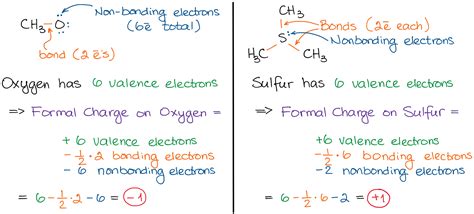 Non-bonding electrons
(6ē total)
CH₃–O:
bond (2 ē's)
Oxygen has 6 valence electrons
=> Formal Charge on Oxygen =
+6 valence electrons
-1/2·2 bonding electrons
-6 nonbonding electrons
= 6-1/2·2-6 = -1
CH₃
Bonds (2ē each)
S:
Nonbonding electrons
H₃C
CH₃
Sulfur has 6 valence electrons
=> Formal Charge on Sulfur =
+6 valence electrons
-1/2·6 bonding electrons
-2 nonbonding electrons
= 6-1/2·6-2 = +1